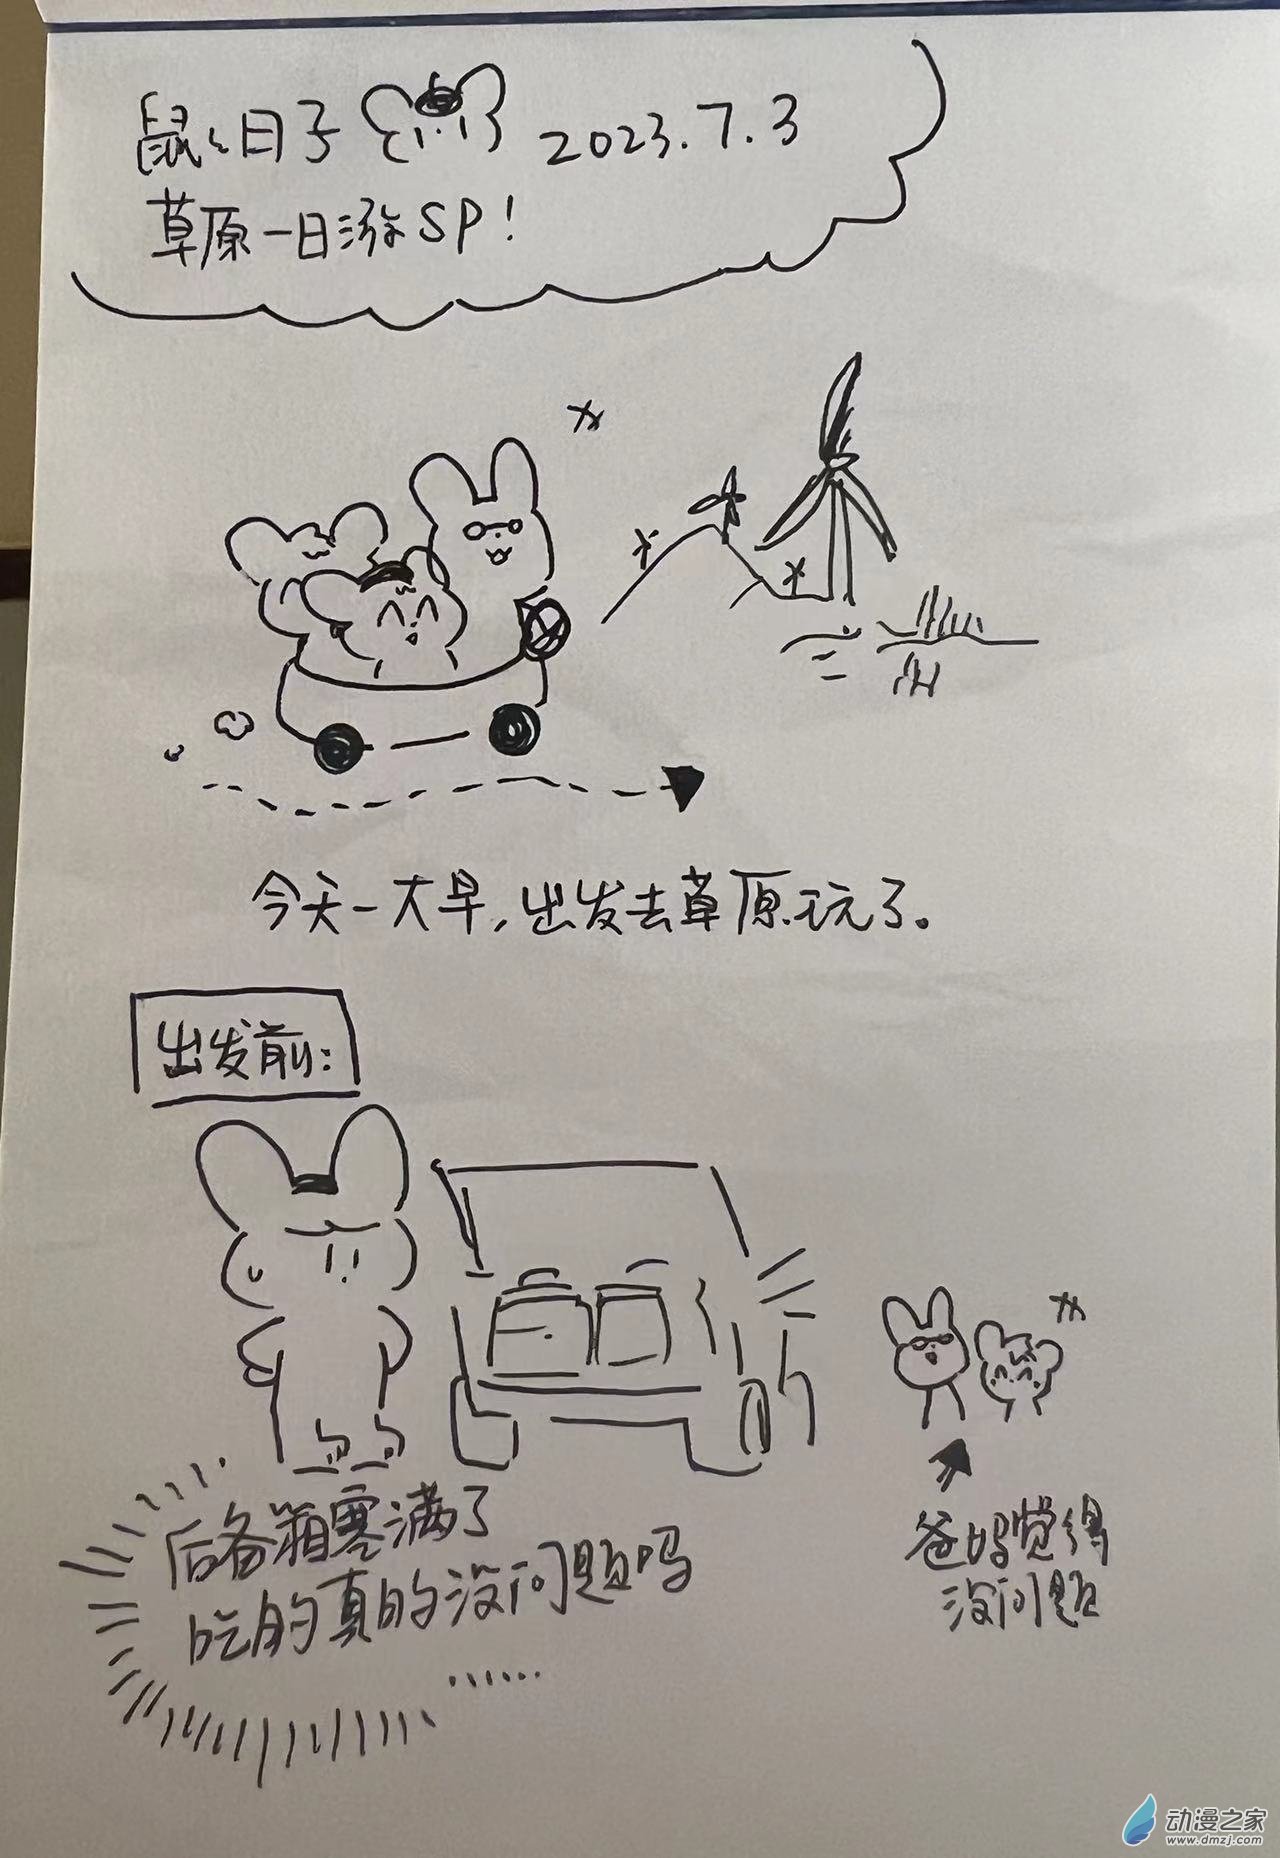 鼠鼠日子 2023.7.3
草原一日游SP!
今天一大早,出发去草原玩了。
出发前:
后备箱塞满了
吃的真的没问题吗
......
爸妈觉得
没问题
动漫之家
www.dmzj.com